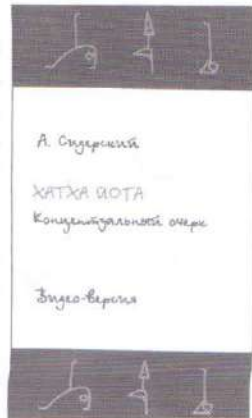 А. Сидерский
ХАТХА ЙОГА
Концептуальный очерк
Видео-версия